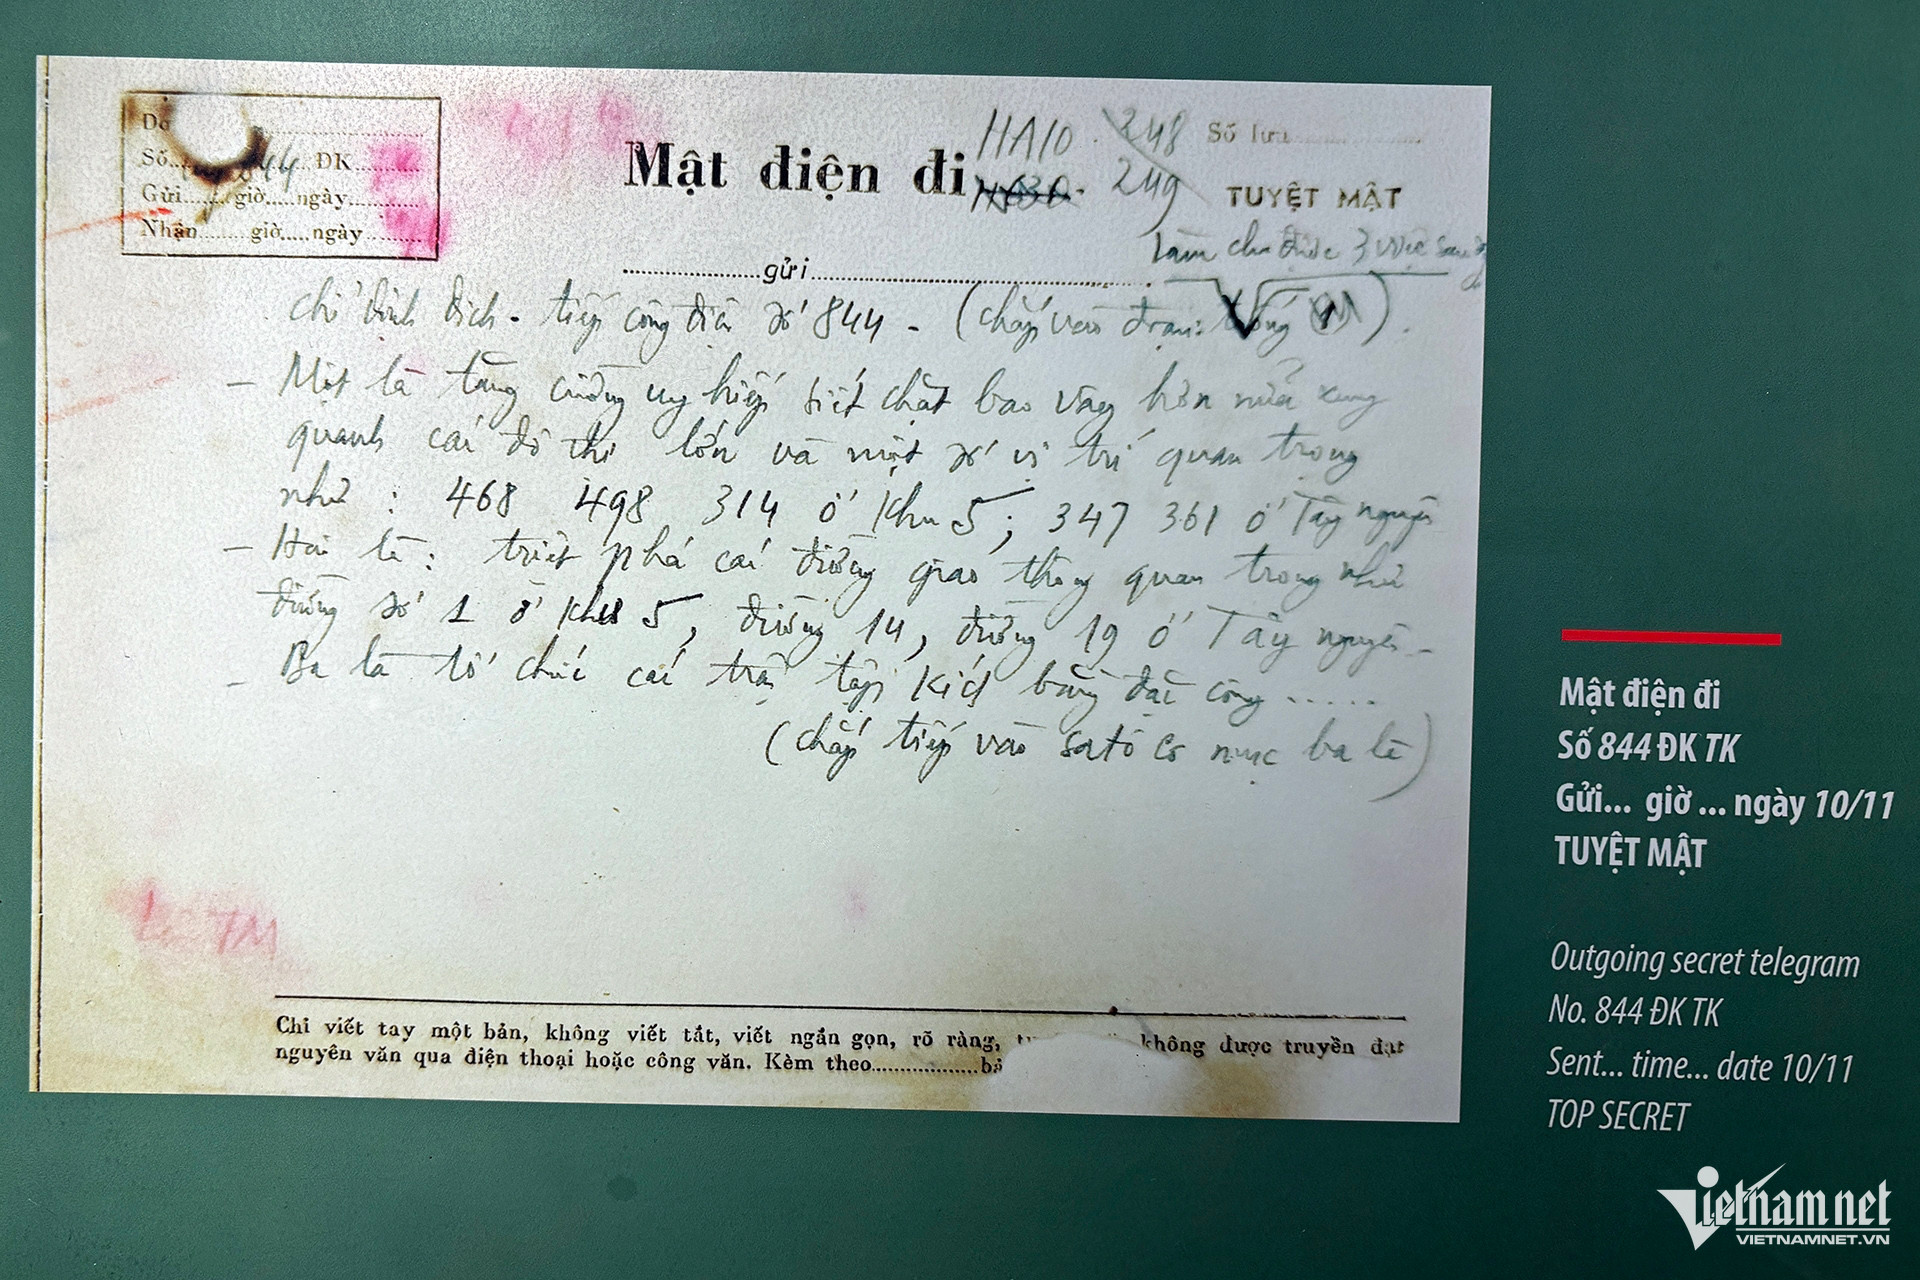 Số.... 844 ĐK
Gửi......giờ.....ngày
Nhận........giờ.....ngày
Mật điện đi
HA10
248
249
Số lưu
TUYỆT MẬT
làm cho được 3 việc sau đây
gửi
Chỉ định dịch - tiếp công điện số 844 - (chắp vào đoạn: )
- Một là tăng cường uy hiếp siết chặt bao vây hơn nữa xung
quanh các đô thị lớn và một số vị trí quan trọng
như : 468 498 314 ở Khu 5 ; 347 361 ở Tây nguyên
- Hai là : triệt phá các đường giao thông quan trọng như
đường số 1 ở Khu 5, đường 14, đường 19 ở Tây nguyên -
- Ba là tổ chức các trận tập kích bằng đặc công .....
(chắp tiếp vào mục ba là)
Chỉ viết tay một bản, không viết tắt, viết ngắn gọn, rõ ràng, không được truyền đạt
nguyên văn qua điện thoại hoặc công văn. Kèm theo
Mật điện đi
Số 844 ĐK TK
Gửi... giờ ... ngày 10/11
TUYỆT MẬT
Outgoing secret telegram
No. 844 ĐK TK
Sent... time... date 10/11
TOP SECRET
Vietnamnet
VIETNAMNET.VN